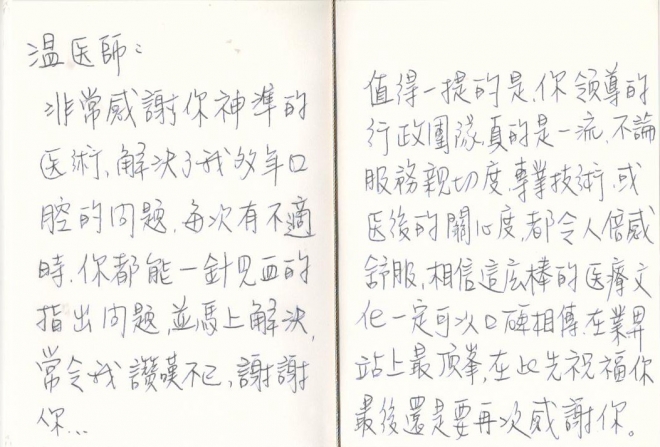 温医師：
非常感謝你神準的
医術，解決了我多年口
腔的问題，每次有不適
時，你都能一針见血的
指出问題，並馬上解決，
常令我讚嘆不已，謝謝
你...
值得一提的是，你領導的
行政團隊，真的是一流，不論
服務親切度，專業技術，或
医後的關心度，都令人倍感
舒服，相信這麽棒的医療文
化一定可以口碑相傳，在業界
站上最頂峯，在此先祝福你
最後還是要再次感謝你。